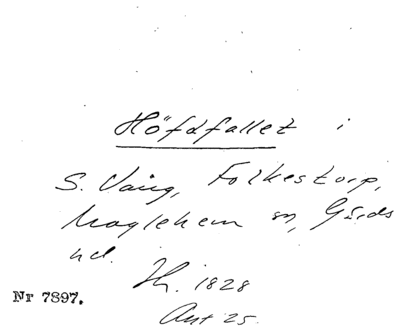 Höfdfallet i
S. Vång, Folkestorp,
Maglehem sn, Gärds
hd.
Hj. 1828
Nr 7897.
Ant 25.